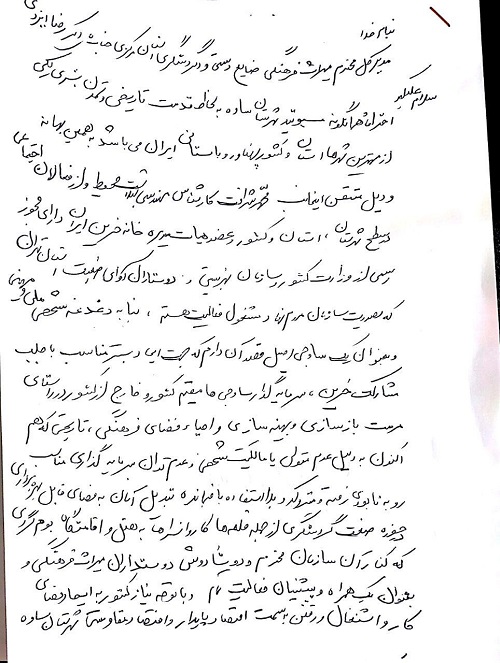 بنام خدا
مدیر کل محترم میراث فرهنگی صنایع دستی و گردشگری استان مرکزی جناب
سلام علیکم
احتراما همانگونه مستحضرید شهرستان ساوه به لحاظ قدمت تاریخی و تمدن بشری یکی
از مهمترین شهرهای استان و کشور پهناور و باستانی ایران می باشد به همین بهانه
و دلیل متقن اینجانب کارشناس مهندسی بهداشت محیط و از فعالان اجتماعی
در سطح شهرستان ، استان و کشور و عضو هیات مدیره خانه خیرین ایران دارای مجوز
رسمی از وزارت کشور و سازمان بهزیستی و دوستداران استان تهران
که بصورت سازمان مردم نهاد مشغول فعالیت هستم ، بنا به دغدغه شخصی
و بعنوان یک ساوجی اصیل قصد آن دارم که جهت و بستر مناسب با جلب
مشارکت خیرین ، سرمایه گذار ساوجی ها مقیم کشور و خارج از کشور در راستای
مرمت بازسازی و بهینه سازی و احیاء فضای فرهنگی ، تاریخی که هم
اکنون به دلیل عدم متولی یا مالکیت شخصی و عدم توان سرمایه گذاری مناسب
رو به نابودی رفته و متروکه و بلا استفاده باقیمانده تبدیل آنان به فضای قابل
حوزه صنعت گردشگری از جمله کاروانسراها به هتل و اقامتگاه بوم گردی
که کنار آن سازمان محترم و دوشادوش دوستداران میراث فرهنگی و
بعنوان یک همراه و پشتیبان فعالیت و با توجه نیاز کشور به ایجاد فضای
کار و اشتغال و رفتن به سمت اقتصاد پایدار و اقتصاد مقاومتی شهرستان ساوه